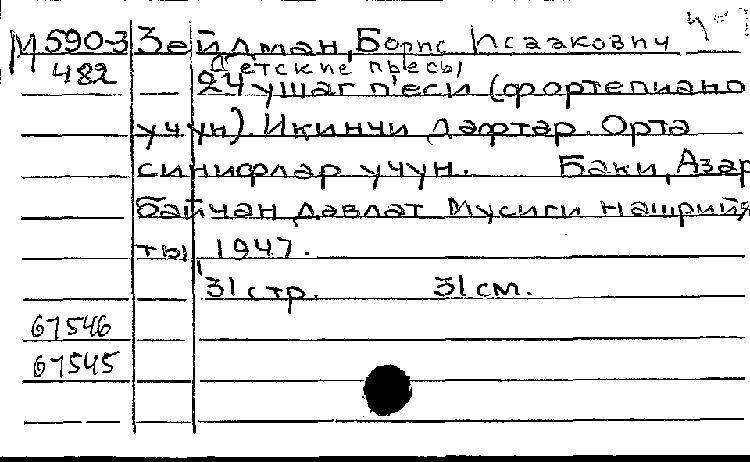 М590-3 Зейдман, Борис Исаакович
482 Детские пьесы
24 ушаг п'еси (фортепиано
учун). Икинчи дафтар. Орта
синифлар учун. Баки, Азар
байчан давлат Мусиги нашрийя
ты 1947.
31 стр. 31 см.
67546
67545